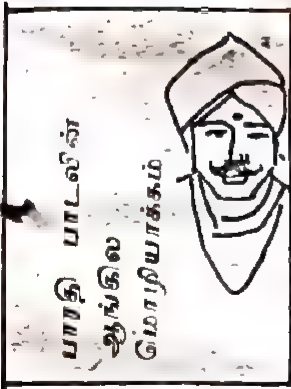 பாரதி பாடலின்
ஆங்கில
மொழியாக்கம்